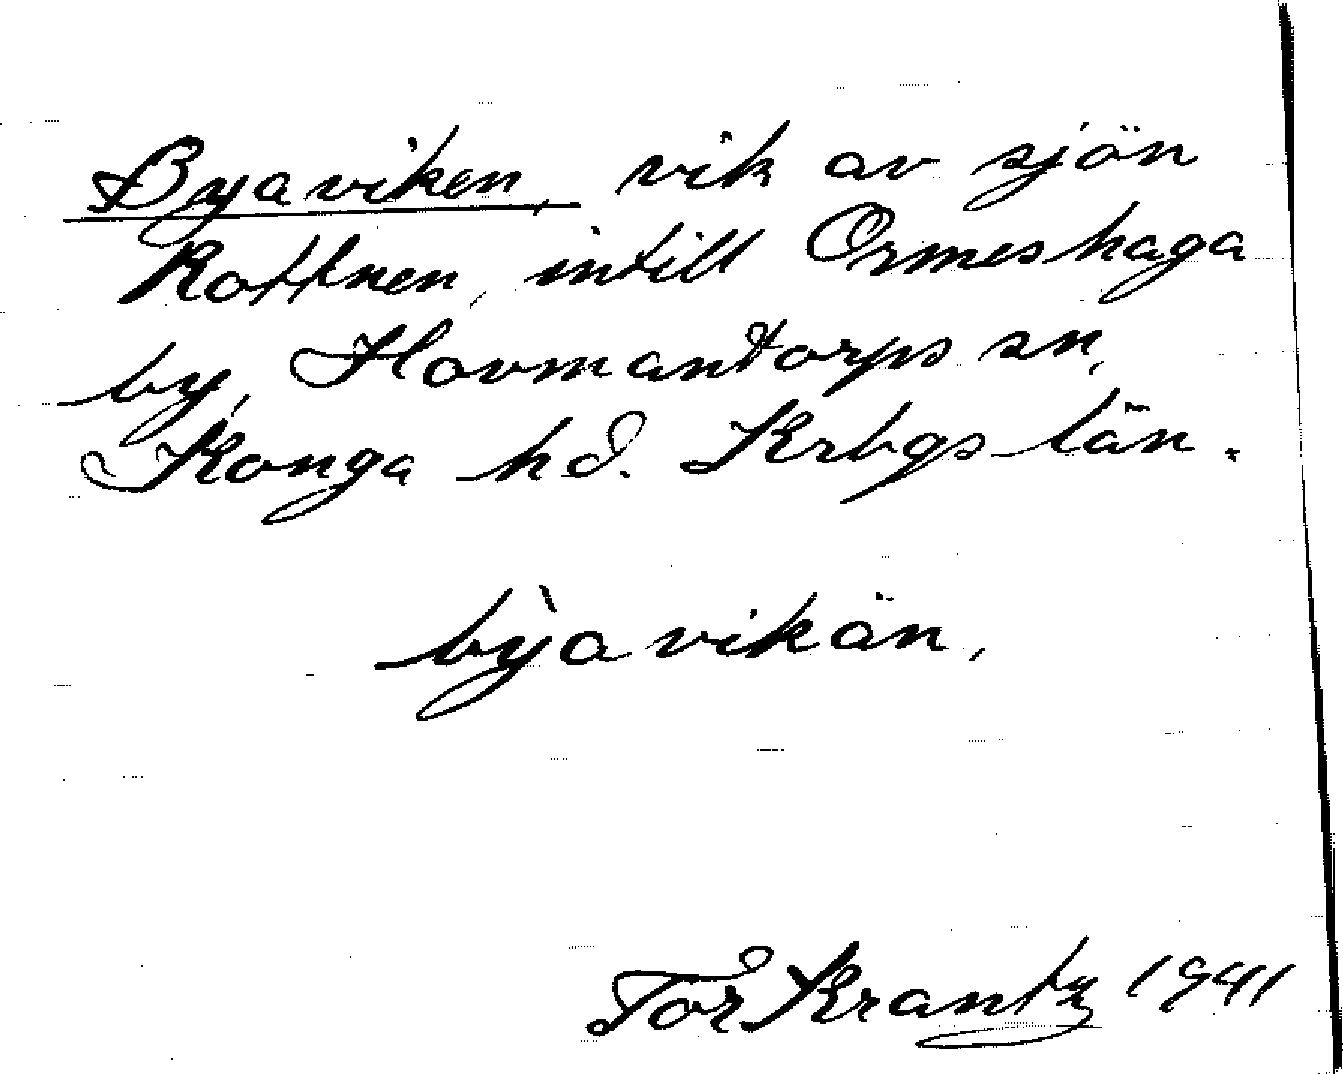 Byaviken, vik av sjön
Rottnen, intill Ormeshaga
by, Hovmantorps sn,
Konga hd. Krbgs län.
bỳavikän,
Tor Krantz 1941